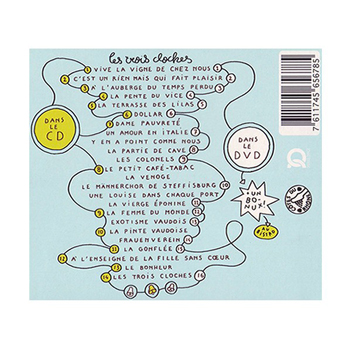 les trois cloches
1 VIVE LA VIGNE DE CHEZ NOUS 1
2 C'EST UN RIEN MAIS QUI FAIT PLAISIR 2
3 À L'AUBERGE DU TEMPS PERDU 3
4 LA PENTE DU VICE 4
5 LA TERRASSE DES LILAS 5
6 DOLLAR 6
7 DAME PAUVRETÉ
UN AMOUR EN ITALIE 7
Y EN A POINT COMME NOUS
LA PARTIE DE CAVE 8
LES COLONELS 9
8 LE PETIT CAFÉ-TABAC
LA VENOGE
LE MÄNNERCHOR DE STEFFISBURG 10
UNE LOUISE DANS CHAQUE PORT
LA VIERGE ÉPONINE 11
9 LA FEMME DU MONDE
EXOTISME VAUDOIS
10 LA PINTE VAUDOISE
FRAUENVEREIN
11 LA GONFLÉE
12 À L'ENSEIGNE DE LA FILLE SANS CŒUR
13 LE BONHEUR
14 LES TROIS CLOCHES 16
DANS
LE
CD
DANS
LE
DVD
+ UN
BO-
NUX!
AU
BISTRO
Q
7 611745 656785